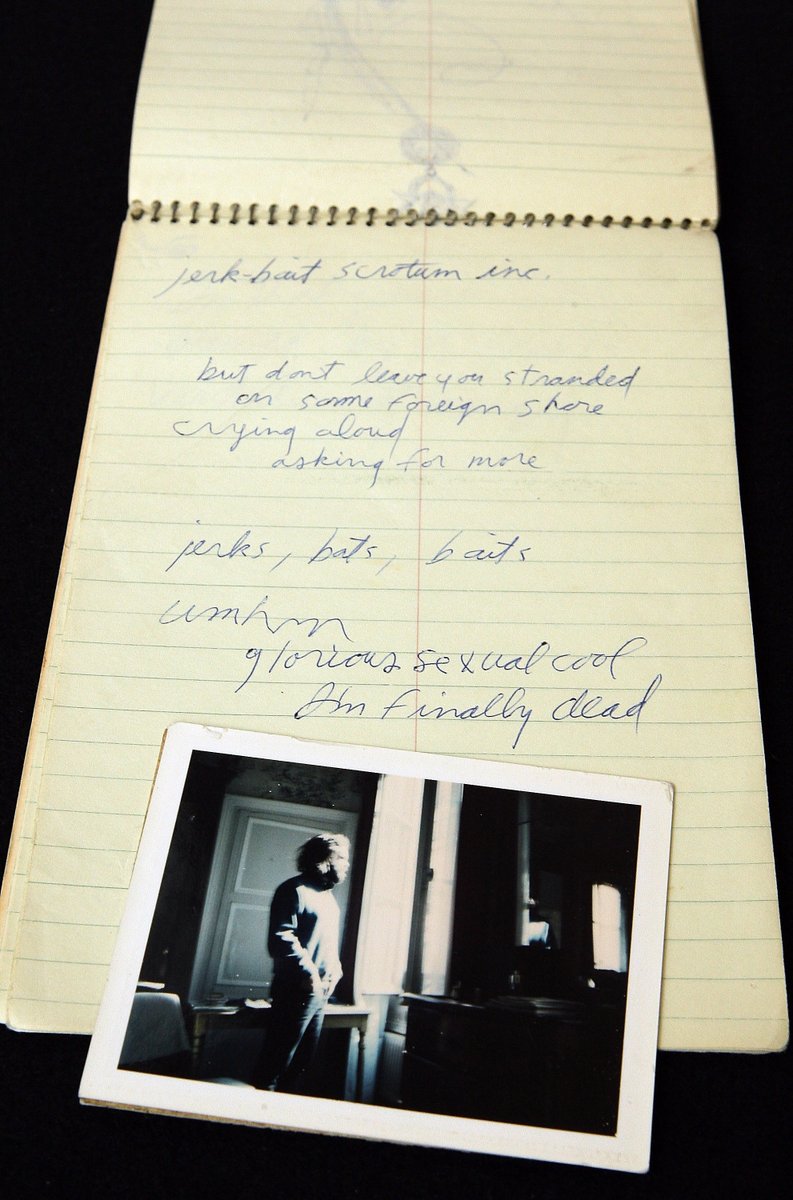 jerk-bait scrotum inc.
but dont leave you stranded
on some foreign shore
crying aloud
asking for more
jerks, bats, baits
umhm
glorious sexual cool
I'm finally dead